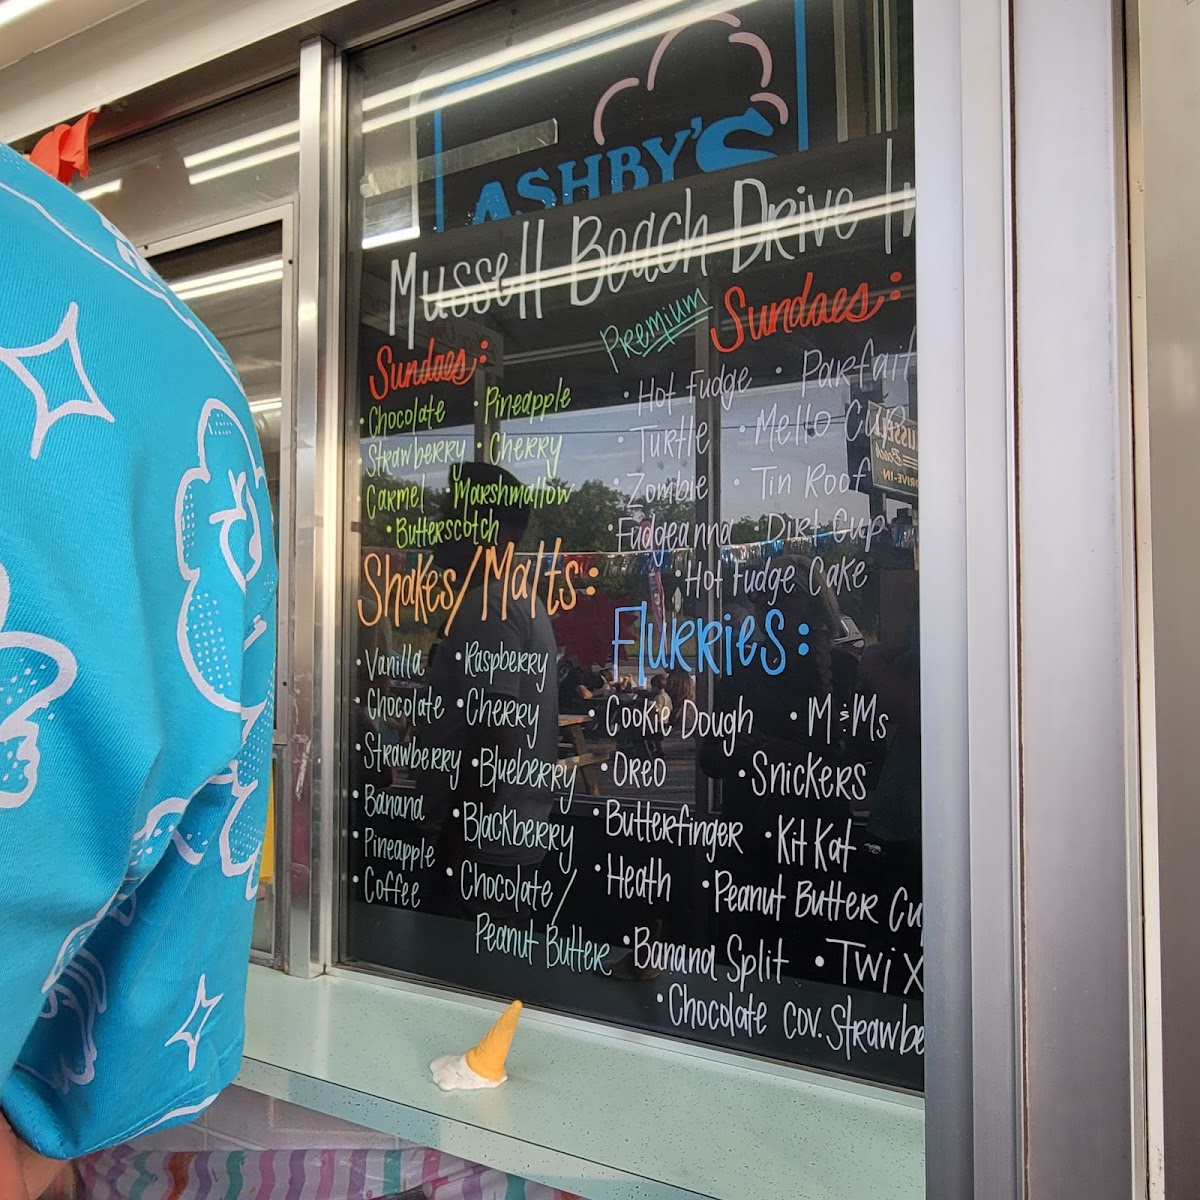 ASHBY'S
Mussell Beach Drive In
Sundaes:
• Chocolate • Pineapple
Strawberry • Cherry
Carmel • Marshmallow
• Butterscotch
Premium Sundaes:
• Hot Fudge • Parfait
• Turtle • Mello Cup
• Zombie • Tin Roof
• Fudgeanna • Dirt Cup
• Hot Fudge Cake
Shakes/Malts:
• Vanilla • Raspberry
• Chocolate • Cherry
• Strawberry • Blueberry
• Banana • Blackberry
• Pineapple • Chocolate/
• Coffee Peanut Butter
Flurries:
• Cookie Dough • M&Ms
• Oreo • Snickers
• Butterfinger • Kit Kat
• Heath • Peanut Butter Cu
• Banana Split • Twix
• Chocolate cov. Strawbe